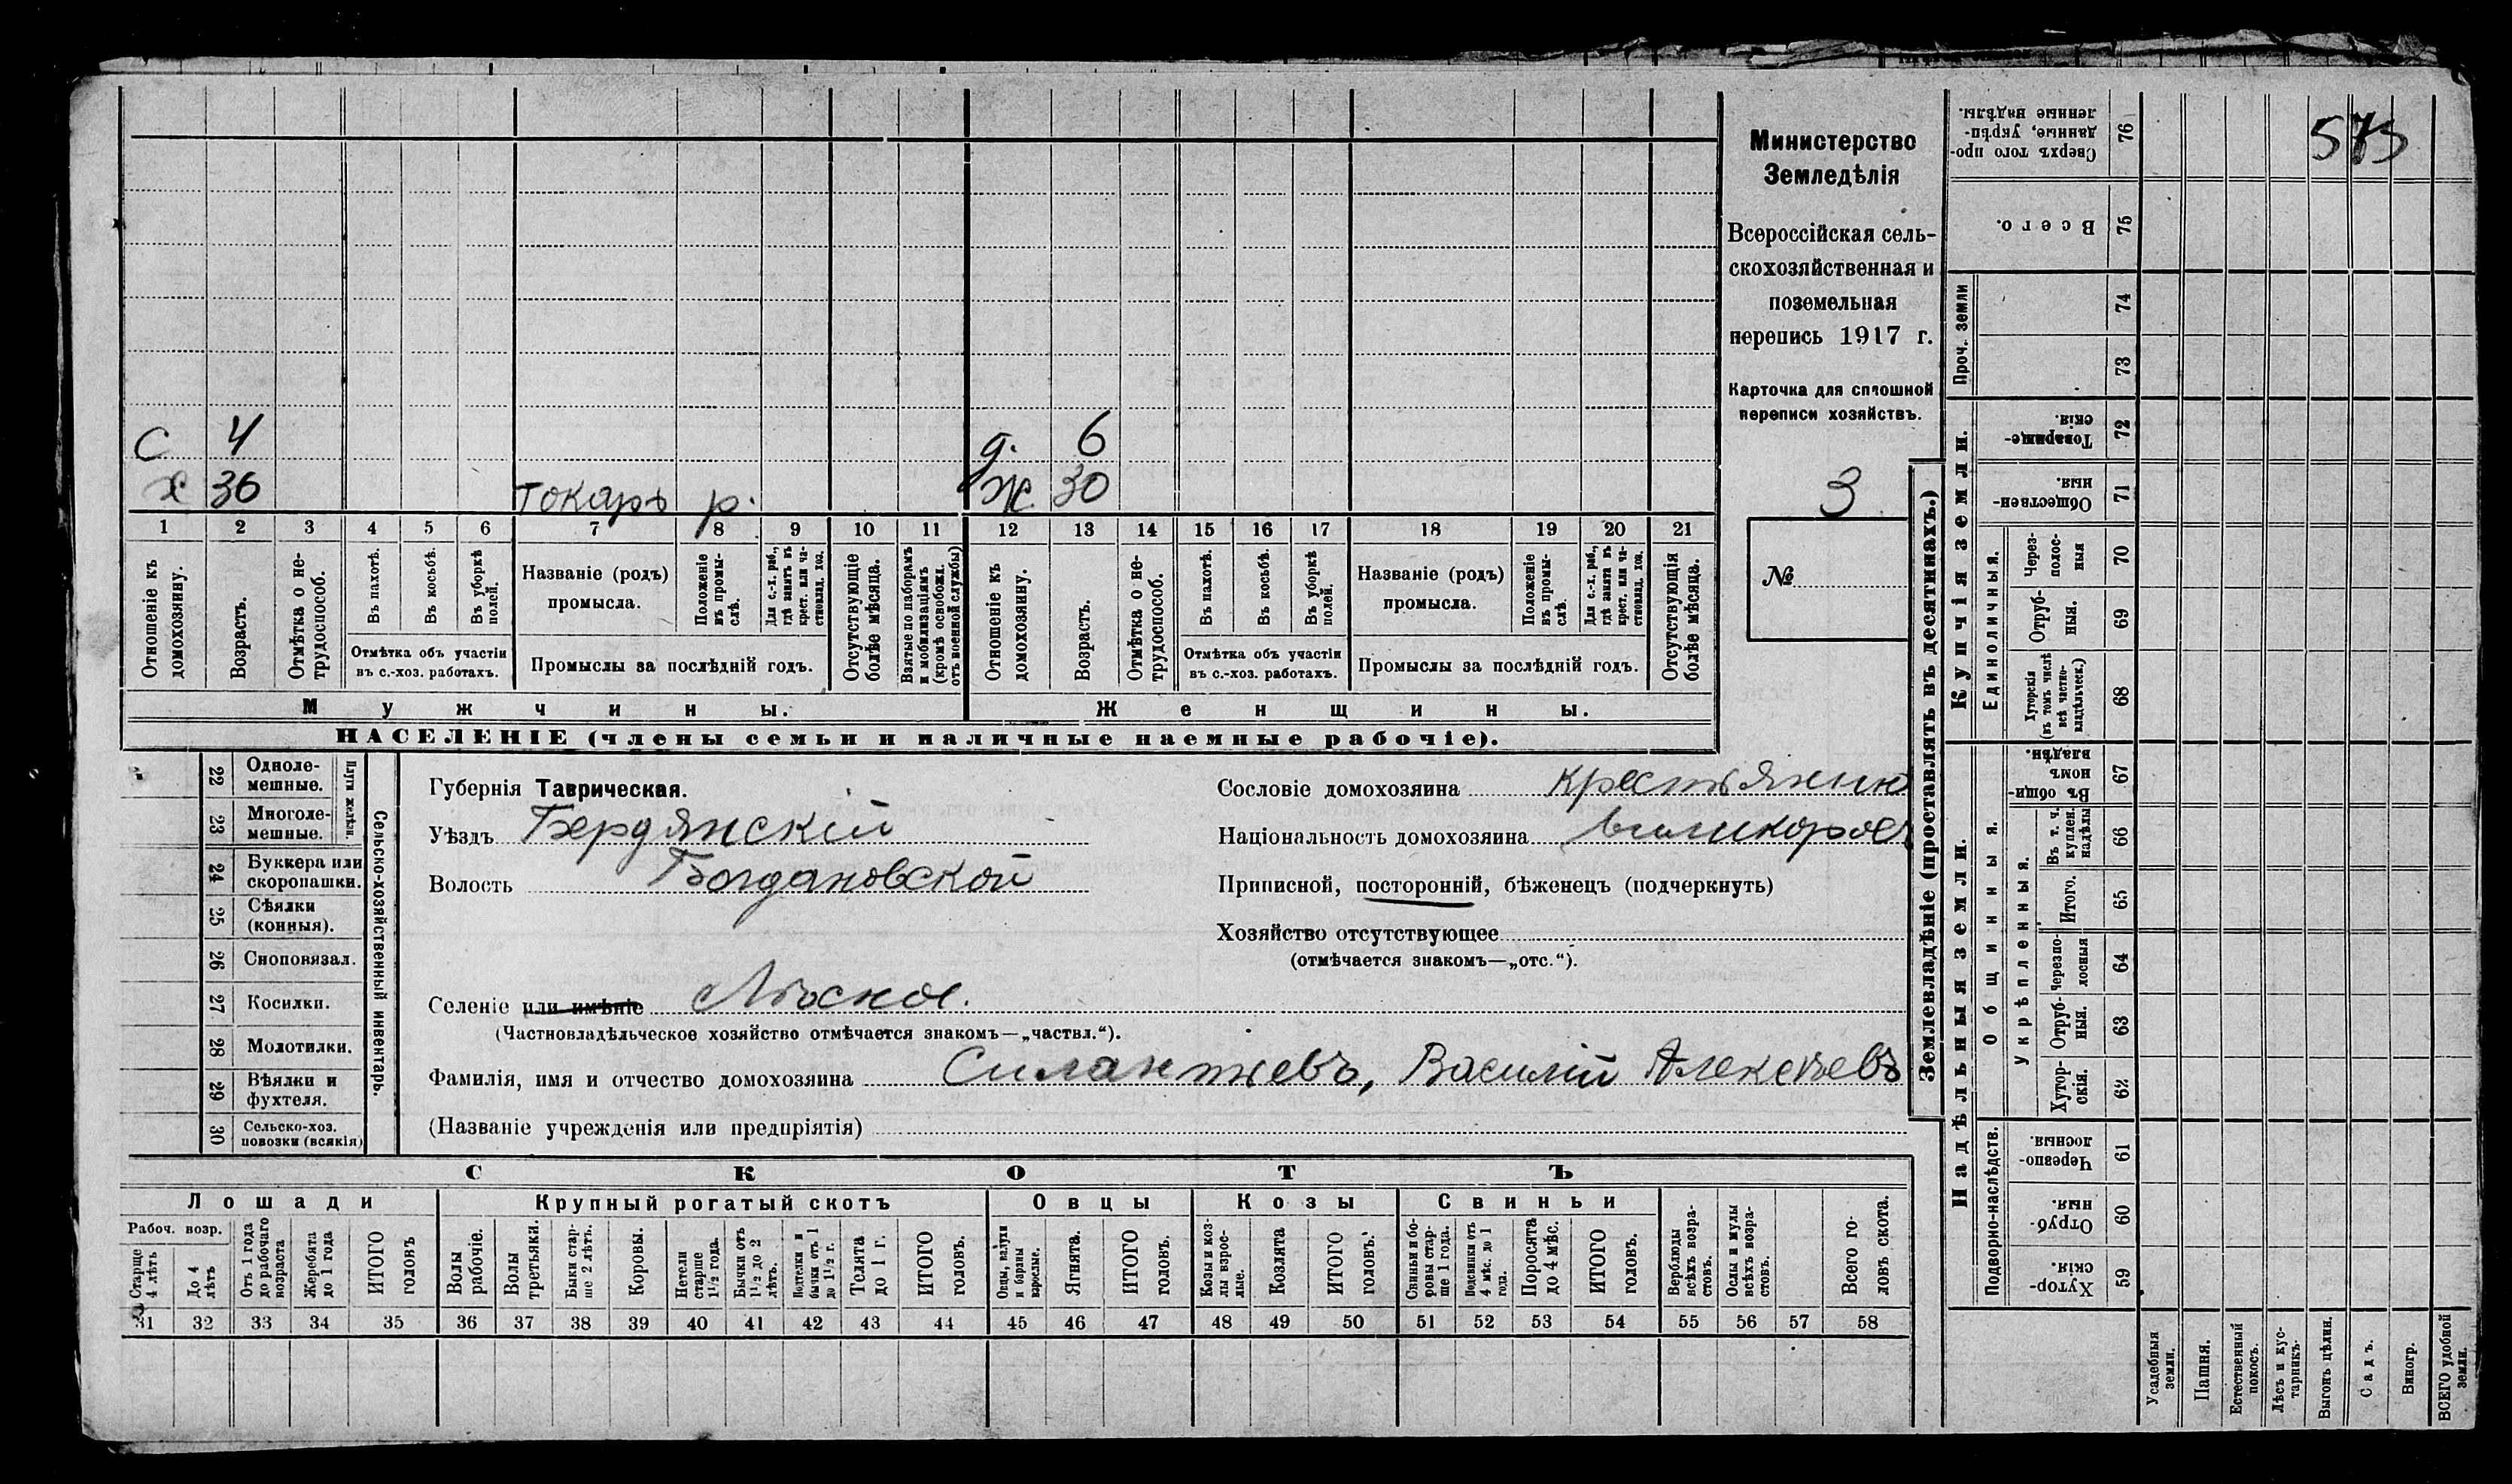 575
Министерство
Земледѣлія
Всероссійская сель-
скохозяйственная и
поземельная
перепись 1917 г.
Карточка для сплошной
переписи хозяйствъ.
3
№
С 4 д. 6
Х 36 токарь р. Ж. 30
1 2 3 4 5 6 7 8 9 10 11 12 13 14 15 16 17 18 19 20 21
Отношеніе къ домохозяину.
Возрастъ.
Отмѣтка о не-трудоспособ.
Въ пахотѣ.
Въ косьбѣ.
Въ уборкѣ полей.
Отмѣтка объ участіи
въ с.-хоз. работахъ.
Названіе (родъ)
промысла.
Положеніе въ промы-слѣ.
Для с.-х. раб., гдѣ занятъ въ крест. или ча-стновлад. хоз.
Промыслы за послѣдній годъ.
Отсутствующіе болѣе мѣсяца.
Взятые по наборамъ и мобилизаціямъ (кромѣ освобожд. отъ военной службы)
Отношеніе къ домохозяину.
Возрастъ.
Отмѣтка о не-трудоспособ.
Въ пахотѣ.
Въ косьбѣ.
Въ уборкѣ полей.
Отмѣтка объ участіи
въ с.-хоз. работахъ.
Названіе (родъ)
промысла.
Положеніе въ промы-слѣ.
Для с.-х. раб., гдѣ занята въ крест. или ча-стновлад. хоз.
Промыслы за послѣдній годъ.
Отсутствующія болѣе мѣсяца.
Мужчины. Женщины.
НАСЕЛЕНІЕ (члены семьи и наличные наемные рабочіе).
22 Одноле-мешные.
23 Многоле-мешные.
Плуги желѣзн.
24 Буккера или скоропашки.
25 Сѣялки (конныя).
26 Сноповязал.
27 Косилки.
28 Молотилки.
29 Вѣялки и фухтеля.
30 Сельско-хоз. повозки (всякія)
Сельско-хозяйственный инвентарь.
Губернія Таврическая.
Уѣздъ Бердянскій
Волость Богдановской
Селеніе или имѣніе Лѣсное.
(Частновладѣльческое хозяйство отмѣчается знакомъ—„частвл.“).
Фамилія, имя и отчество домохозяина Силантьевъ, Василій Алексѣевъ
(Названіе учрежденія или предпріятія)
Сословіе домохозяина крестьянин
Національность домохозяина великоросъ
Приписной, посторонній, бѣженецъ (подчеркнуть)
Хозяйство отсутствующее
(отмѣчается знакомъ—„отс.“).
СКОТЪ
Лошади Крупный рогатый скотъ Овцы Козы Свиньи
Рабоч. возр.
Старше 4 лѣтъ
До 4 лѣтъ
Отъ 1 года до рабочаго возраста
Жеребята до 1 года
ИТОГО головъ
Волы рабочіе.
Волы третьяки.
Быки стар-ше 2 лѣтъ.
Коровы.
Нетели старше 1½ года.
Бычки отъ 1½ до 2 лѣтъ.
Подтелки и бычки отъ 1 до 1½ г.
Телята до 1 г.
ИТОГО головъ.
Овцы, валухи и бараны взрослые.
Ягнята.
ИТОГО головъ.
Козы и коз-лы взрос-лые.
Козлята
ИТОГО головъ.
Свиньи и бо-ровы стар-ше 1 года.
Подсвинки отъ 4 мѣс. до 1 года.
Поросята до 4 мѣс.
ИТОГО головъ.
Верблюды всѣхъ возра-стовъ.
Ослы и мулы всѣхъ возра-стовъ.
Всего го-ловъ скота.
31 32 33 34 35 36 37 38 39 40 41 42 43 44 45 46 47 48 49 50 51 52 53 54 55 56 57 58
Землевладѣніе (проставлять въ десятинахъ.)
Купчія земли.
Надѣльныя земли.
Проч. земли
Единоличныя.
Общинныя.
Укрѣпленныя.
Подворно-наслѣдств.
Сверхъ того про-данные, укрѣп-ленные надѣлы. 76
Всего. 75
74
73
Товарище-скія. 72
Обществен-ныя. 71
Через-полос-ныя 70
Отруб-ныя. 69
Хуторскія (въ томъ числѣ всѣ частно-владѣльческ.) 68
Въ общи-номъ владѣн. 67
Въ т. ч. куплен. надѣлы 66
Итого. 65
Черезпо-лосныя 64
Отруб-ныя. 63
Хутор-скія. 62
Черезпо-лосныя. 61
Отруб-ныя. 60
Хутор-скія. 59
Усадебныя земли.
Пашня.
Естественный покосъ.
Лѣсъ и кус-тарникъ.
Выгонъ цѣлин.
Садъ.
Виногр.
ВСЕГО удобной земли.